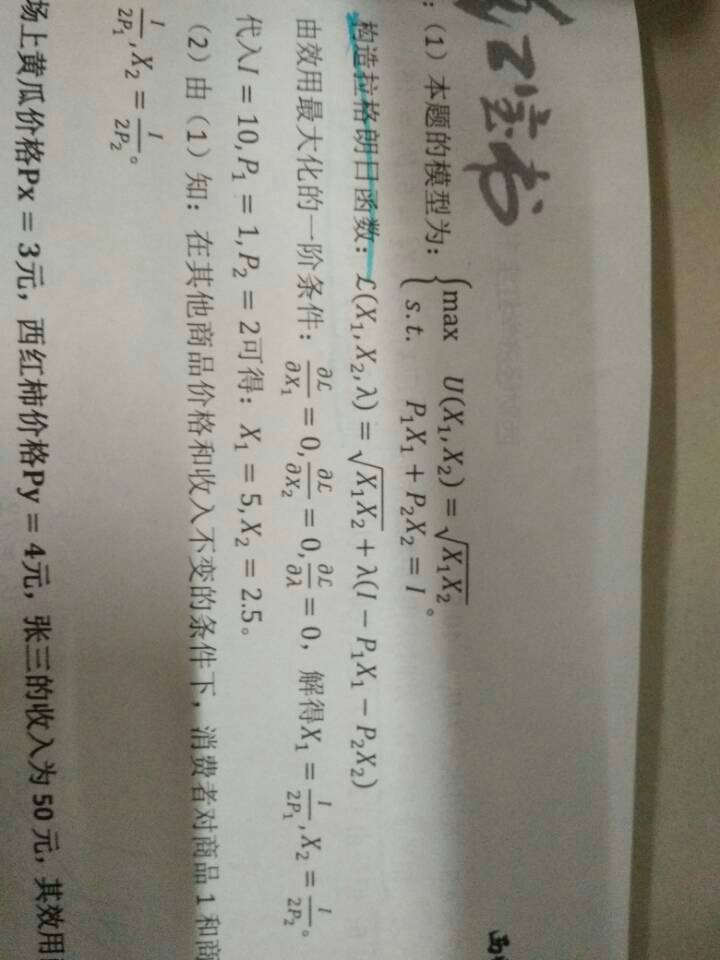 红宝书
:（1）本题的模型为：{max U(X₁, X₂) = √(X₁X₂)
s.t. P₁X₁ + P₂X₂ = I 。
构造拉格朗日函数：ℒ(X₁, X₂, λ) = √(X₁X₂) + λ(I − P₁X₁ − P₂X₂)
由效用最大化的一阶条件：∂ℒ/∂X₁ = 0, ∂ℒ/∂X₂ = 0, ∂ℒ/∂λ = 0，解得X₁ = I/2P₁, X₂ = I/2P₂。
代入I = 10, P₁ = 1, P₂ = 2可得：X₁ = 5, X₂ = 2.5。
（2）由（1）知：在其他商品价格和收入不变的条件下，消费者对商品 1 和商
I/2P₁, X₂ = I/2P₂。
场上黄瓜价格Px = 3元，西红柿价格Py = 4元，张三的收入为 50 元，其效用